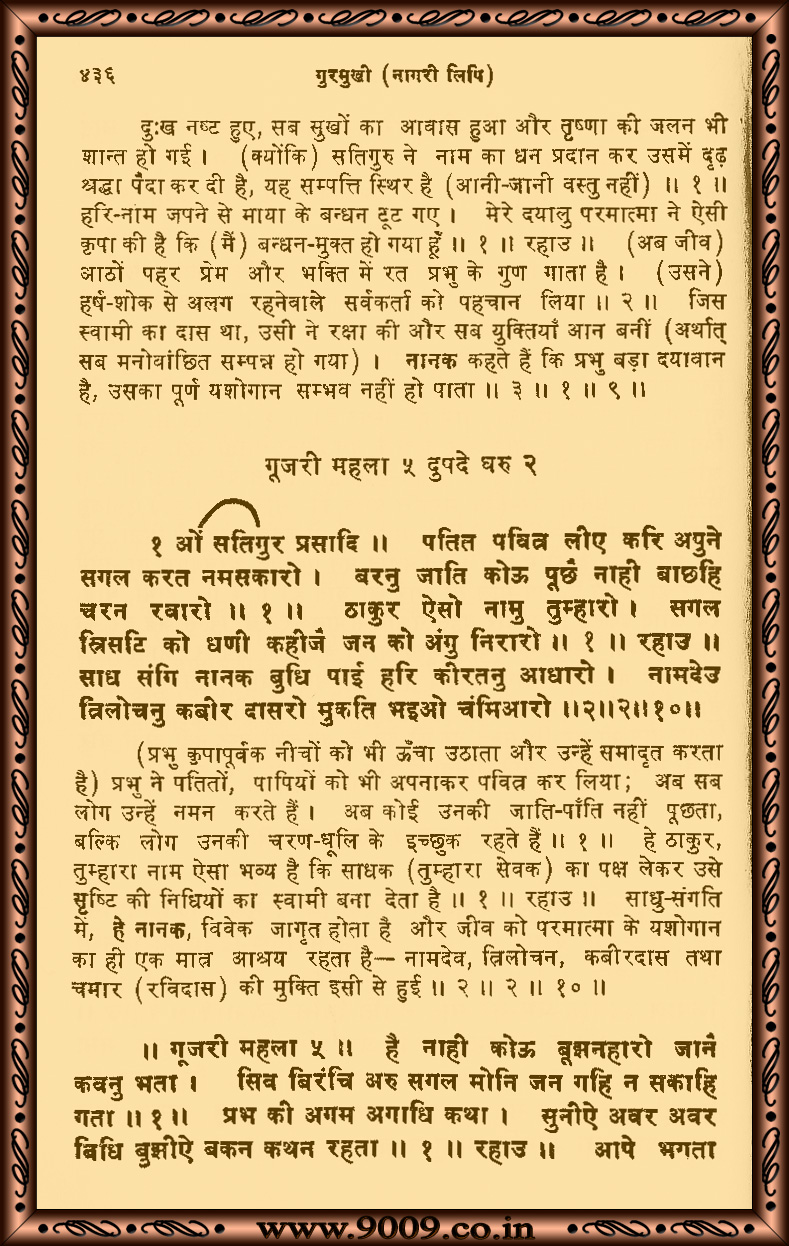 ४३६ गुरमुखी (नागरी लिपि)
दुःख नष्ट हुए, सब सुखों का आवास हुआ और तृष्णा की जलन भी
शान्त हो गई। (क्योंकि) सतिगुरु ने नाम का धन प्रदान कर उसमें दृढ़
श्रद्धा पैदा कर दी है, यह सम्पत्ति स्थिर है (आनी-जानी वस्तु नहीं) ॥ १ ॥
हरि-नाम जपने से माया के बन्धन टूट गए। मेरे दयालु परमात्मा ने ऐसी
कृपा की है कि (मैं) बन्धन-मुक्त हो गया हूँ ॥ १ ॥ रहाउ ॥ (अब जीव)
आठों पहर प्रेम और भक्ति में रत प्रभु के गुण गाता है। (उसने)
हर्ष-शोक से अलग रहनेवाले सर्वकर्ता को पहचान लिया ॥ २ ॥ जिस
स्वामी का दास था, उसी ने रक्षा की और सब युक्तियाँ आन बनीं (अर्थात्
सब मनोवांछित सम्पन्न हो गया)। नानक कहते हैं कि प्रभु बड़ा दयावान
है, उसका पूर्ण यशोगान सम्भव नहीं हो पाता ॥ ३ ॥ १ ॥ ९ ॥
गूजरी महला ५ दुपदे घरु २
१ ओं सतिगुर प्रसादि ॥ पतित पवित्र लीए करि अपुने
सगल करत नमसकारो। बरनु जाति कोऊ पूछै नाही बाछहि
चरन रवारो ॥ १ ॥ ठाकुर ऐसो नामु तुम्हारो। सगल
स्रिसटि को धणी कहीजै जन को अंगु निरारो ॥ १ ॥ रहाउ ॥
साध संगि नानक बुधि पाई हरि कीरतनु आधारो। नामदेउ
त्रिलोचनु कबीर दासरो मुकति भइओ चंमिआरो ॥२॥२॥१०॥
(प्रभु कृपापूर्वक नीचों को भी ऊँचा उठाता और उन्हें समादृत करता
है) प्रभु ने पतितों, पापियों को भी अपनाकर पवित्र कर लिया; अब सब
लोग उन्हें नमन करते हैं। अब कोई उनकी जाति-पाँति नहीं पूछता,
बल्कि लोग उनकी चरण-धूलि के इच्छुक रहते हैं ॥ १ ॥ हे ठाकुर,
तुम्हारा नाम ऐसा भव्य है कि साधक (तुम्हारा सेवक) का पक्ष लेकर उसे
सृष्टि की निधियों का स्वामी बना देता है ॥ १ ॥ रहाउ ॥ साधु-संगति
में, हे नानक, विवेक जागृत होता है और जीव को परमात्मा के यशोगान
का ही एक मात्र आश्रय रहता है— नामदेव, त्रिलोचन, कबीरदास तथा
चमार (रविदास) की मुक्ति इसी से हुई ॥ २ ॥ २ ॥ १० ॥
॥ गूजरी महला ५ ॥ है नाही कोऊ बूझनहारो जानै
कवनु भता। सिव बिरंचि अरु सगल मोनि जन गहि न सकाहि
गता ॥ १ ॥ प्रभ की अगम अगाधि कथा। सुनीऐ अवर अवर
बिधि बुझीऐ बकन कथन रहता ॥ १ ॥ रहाउ ॥ आपे भगता
www.9009.co.in